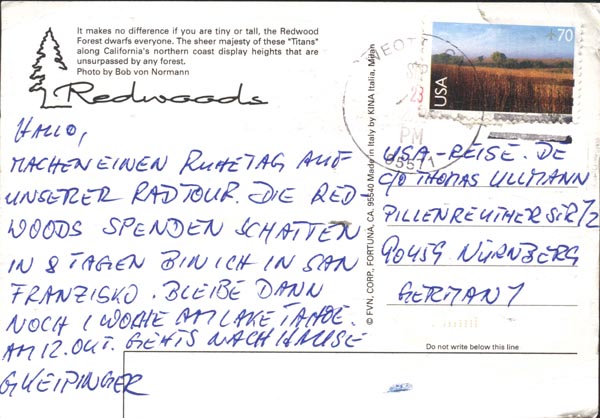 It makes no difference if you are tiny or tall, the Redwood
Forest dwarfs everyone. The sheer majesty of these "Titans"
along California's northern coast display heights that are
unsurpassed by any forest.
Photo by Bob von Normann
Redwoods
HALLO,
MACHEN EINEN RUHETAG AUF
UNSERER RADTOUR. DIE RED-
WOODS SPENDEN SCHATTEN
IN 8 TAGEN BIN ICH IN SAN
FRANZISKO. BLEIBE DANN
NOCH 1 WOCHE AM LAKE TAHOE.
AM 12. OKT. GEHTS NACH HAUSE
© FVN, CORP, FORTUNA, CA. 95540 Made in Italy by KINA Italia, Milan
70
USA
23
PM
95571
USA-REISE.DE
C/O THOMAS ULLMANN
PILLENREUTHERSTR 72
90459 NÜRNBERG
GERMANY
Do not write below this line